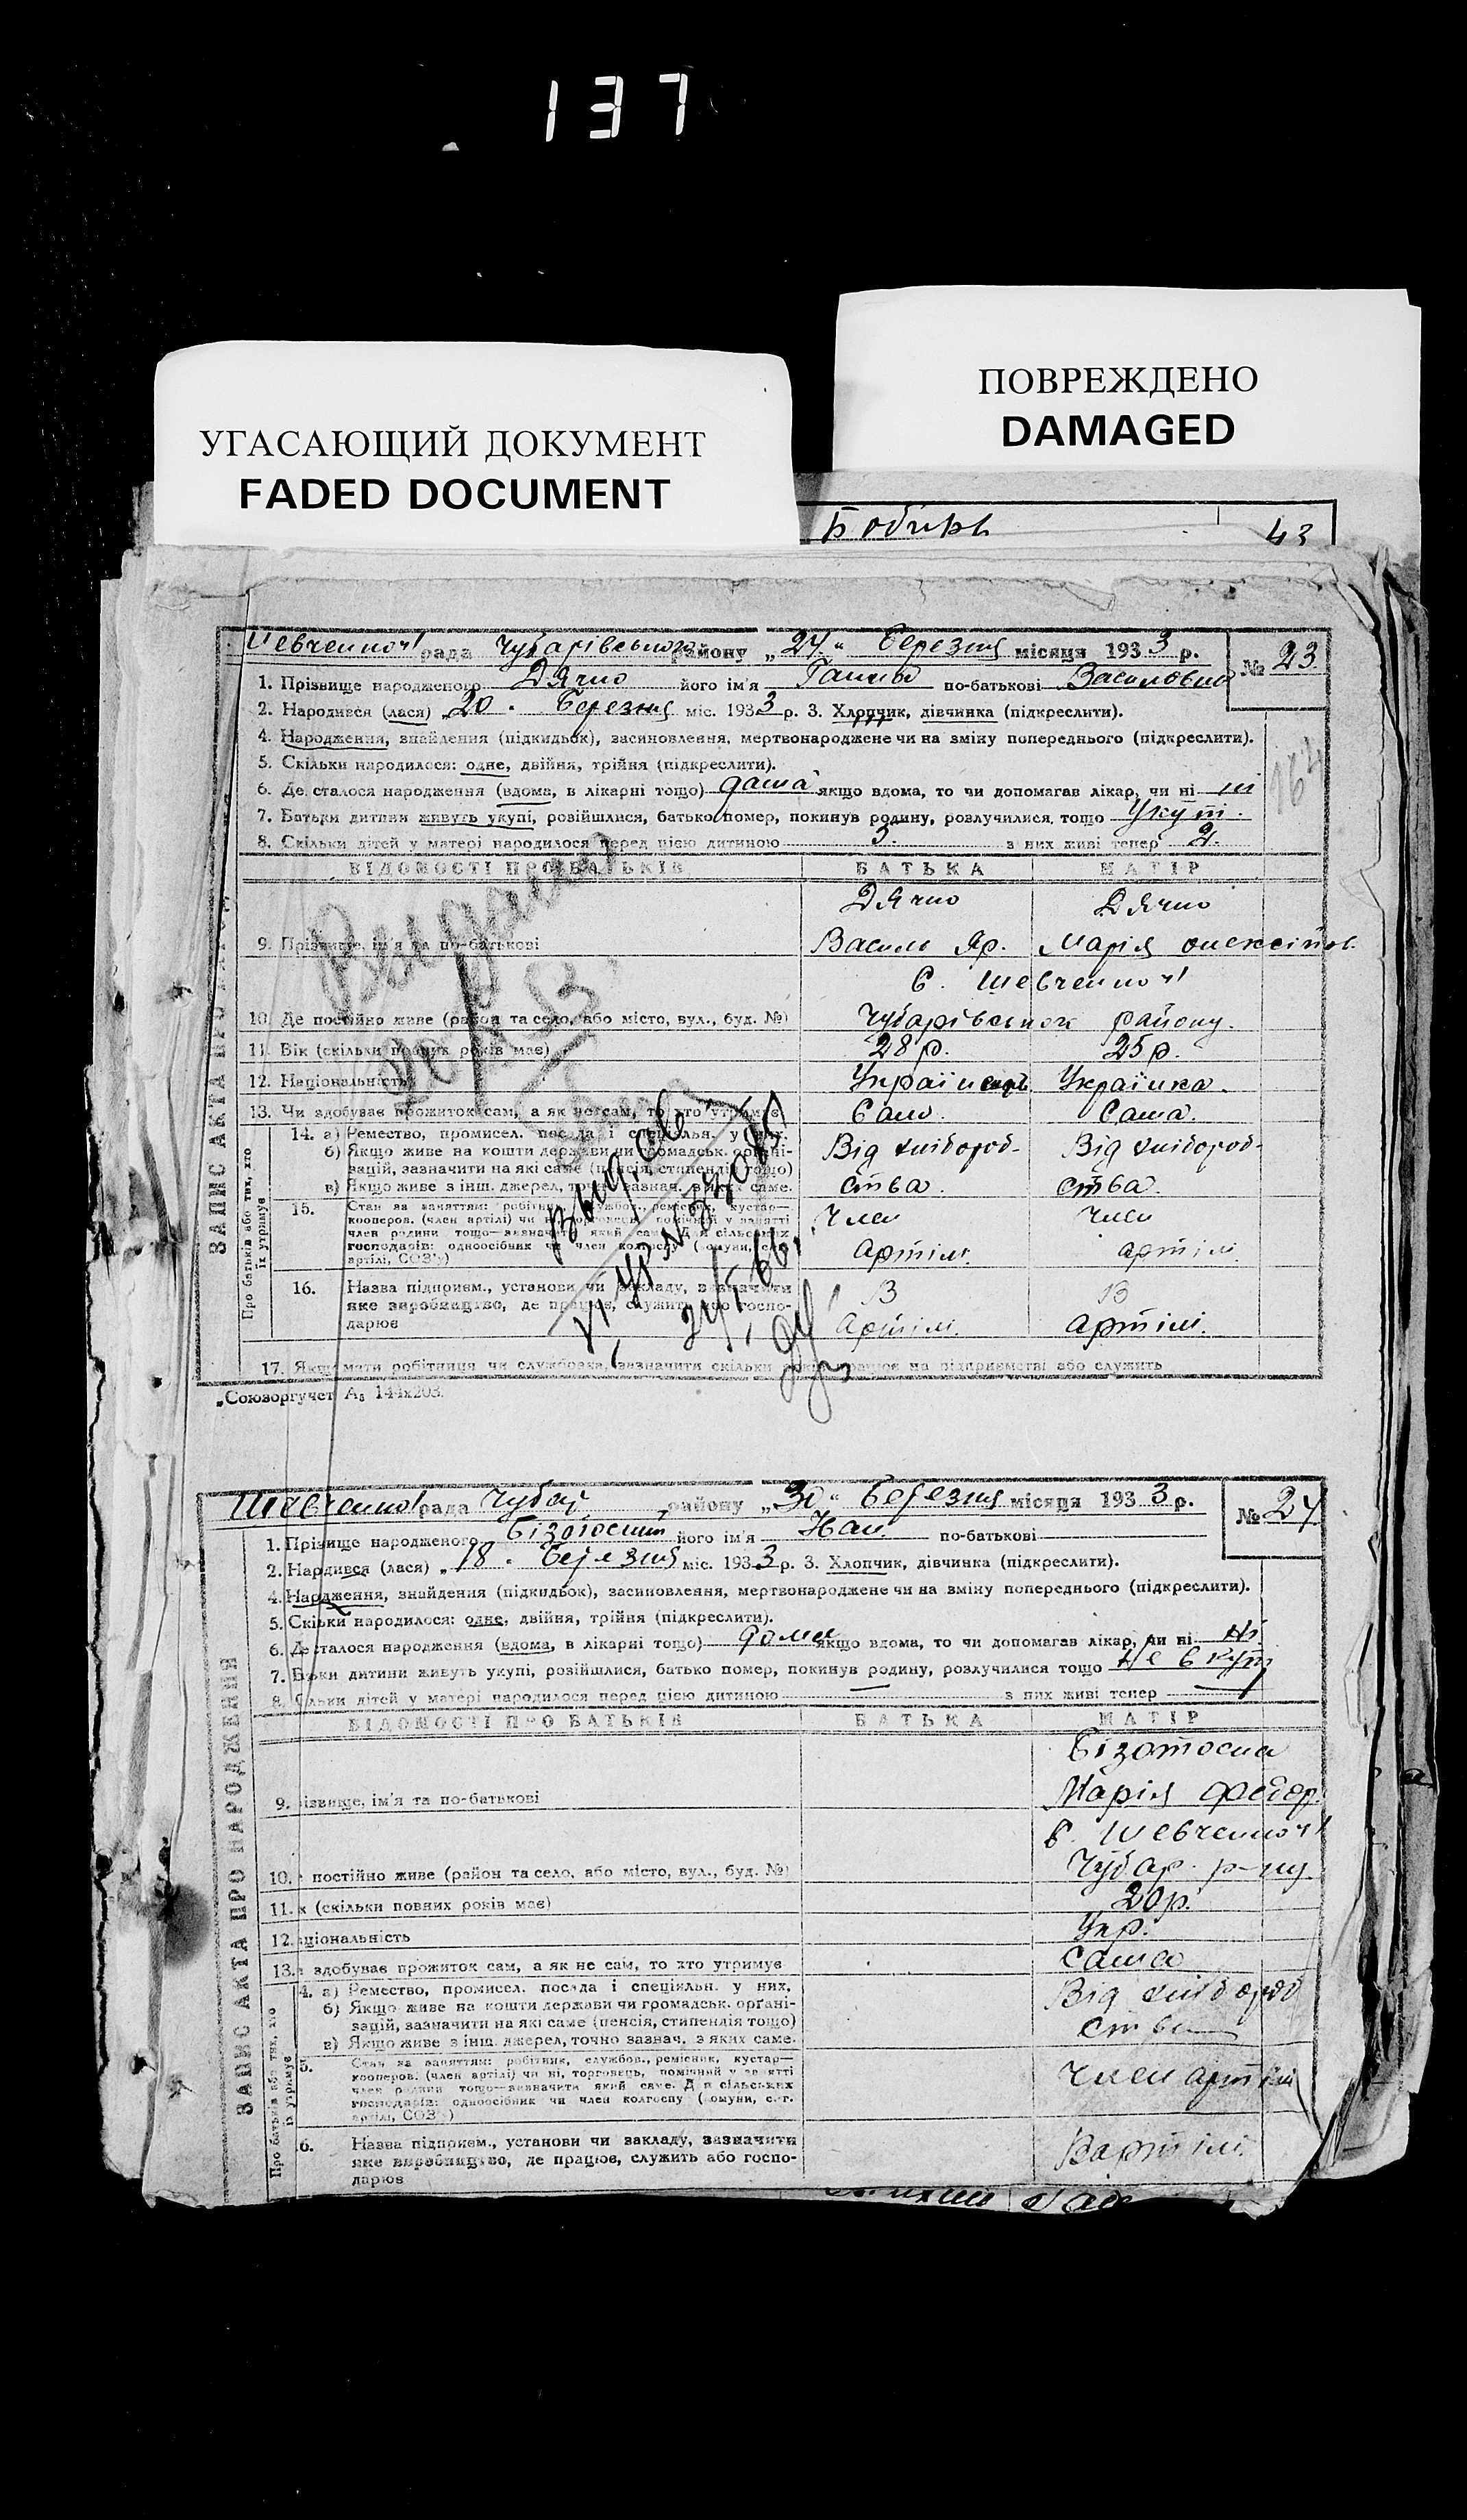 137
ПОВРЕЖДЕНО
DAMAGED
УГАСАЮЩИЙ ДОКУМЕНТ
FADED DOCUMENT
43
рада Чубарівського району „24“ березня місяця 1933 р. № 23
1. Прізвище народженого Дячко його ім'я Ганна по-батькові Василовна
2. Народився (лася) 20. березня міс. 1933 р. 3. Хлопчик, дівчинка (підкреслити).
4. Народження, знайдення (підкидьок), засиновлення, мертвонароджене чи на зміну попереднього (підкреслити).
5. Скільки народилося: одне, двійня, трійня (підкреслити).
6. Де сталося народження (вдома, в лікарні тощо) якщо вдома, то чи допомагав лікар, чи ні ні
7. Батьки дитини живуть укупі, розійшлися, батько помер, покинув родину, розлучилися, тощо Укупі.
8. Скільки дітей у матері народилося перед цією дитиною 3. з них живі тепер 2.
ВІДОМОСТІ ПРО БАТЬКІВ БАТЬКА МАТІР
Дячко Дячко
9. Прізвище, ім'я та по-батькові Василь Яр. Марія
с. Шевченкої
10. Де постійно живе (район та село, або місто, вул., буд. №) Чубарівськ району.
11. Вік (скільки повних років має) 28 р. 25 р.
12. Національність Українець Українка.
13. Чи здобуває прожиток сам, а як не сам, то хто утримує Сам. Сама.
14. а) Ремество, промисел. посада і спеціяльн. у них.
б) Якщо живе на кошти держави чи громадськ. організацій, зазначити на які саме (пенсія, стипендія тощо) Від хлібороб- Від хлібороб-
в) Якщо живе з інш. джерел, точно зазнач. з яких саме. ства. ства.
15. Стан за заняттям: робітник, службов., ремісник, кустар— Член Член
кооперов. (член артілі) чи ні, торговець, помічний у занятті
член родини тощо—зазначити який саме. Для сільських
господарів: одноосібник чи член колгоспу (комуни, с.-г. артілі артілі
артілі, СОЗ'у)
16. Назва підприєм., установи чи закладу, зазначити В В
яке виробництво, де працює, служить або господарює Артілі. артілі.
17. Якщо мати робітниця чи службовка, зазначити скільки працює на підприємстві або служить
„Союзоргучет“ А₅ 144x203.
ЗАПИС АКТА ПРО
Про батьків або тих, хто їх утримує
рада Чубар району „30“ березня місяця 1933 р. № 24
1. Прізвище народженого його ім'я Іван по-батькові
2. Народився (лася) „18. березня міс. 1933 р. 3. Хлопчик, дівчинка (підкреслити).
4. Народження, знайдення (підкидьок), засиновлення, мертвонароджене чи на зміну попереднього (підкреслити).
5. Скільки народилося: одне, двійня, трійня (підкреслити).
6. Де сталося народження (вдома, в лікарні тощо) дома якщо вдома, то чи допомагав лікар, чи ні ні.
7. Батьки дитини живуть укупі, розійшлися, батько помер, покинув родину, розлучилися тощо Не вкупі
8. Скільки дітей у матері народилося перед цією дитиною — з них живі тепер —
ВІДОМОСТІ ПРО БАТЬКІВ БАТЬКА МАТІР
Бізотосна
9. ізвище, ім'я та по-батькові Марія Федор.
с. Шевченкої
10. постійно живе (район та село, або місто, вул., буд. №) Чубар. р-ну.
11. к (скільки повних років має) 20 р.
12. ціональність Укр.
13. здобуває прожиток сам, а як не сам, то хто утримує сама
4. а) Ремество, промисел. посада і спеціяльн. у них. Від хлібороб
б) Якщо живе на кошти держави чи громадськ. організацій, зазначити на які саме (пенсія, стипендія тощо) ства
в) Якщо живе з інш. джерел, точно зазнач. з яких саме.
5. Стан за заняттям: робітник, службов., ремісник, кустар—
кооперов. (член артілі) чи ні, торговець, помічний у занятті Член артілі
член родини тощо—зазначити який саме. Для сільських
господарів: одноосібник чи член колгоспу (комуни, с.-г.
артілі, СОЗ'у)
6. Назва підприєм., установи чи закладу, зазначити В артілі.
яке виробництво, де працює, служить або господарює
ЗАПИС АКТА ПРО НАРОДЖЕННЯ
Про батьків або тих, хто їх утримує